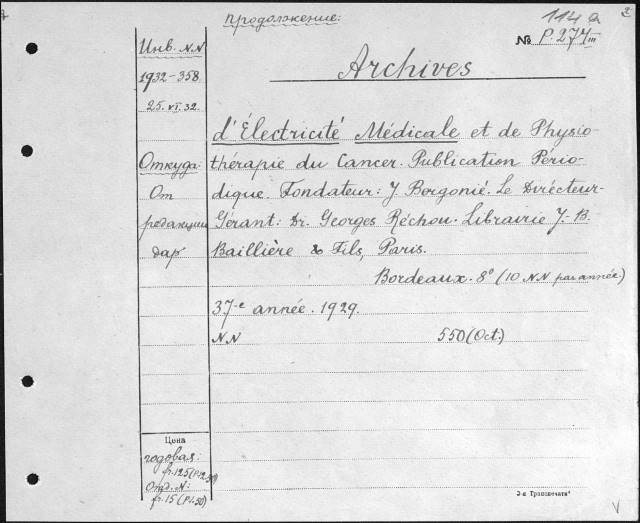 Продолжение:
114a
2
№ P.274III
Инв. NN
1932-358
25.VI.32.
Откуда:
От
редакции
дар
Archives
d'Électricité Médicale et de Physio-
thérapie du Cancer. Publication Pério-
dique. Fondateur: J Bergonié. Le Directeur-
Gérant: Dr. Georges Réchou. Librairie J.-B.
Baillière & Fils, Paris.
Bordeaux. 8° (10 NN par année.)
37-e année. 1929.
NN 550 (Oct.)
Цена
годовая:
fr.125 (P.12.50)
Отд. N:
fr.15 (P.1.50)
3-я Транспечати"
V